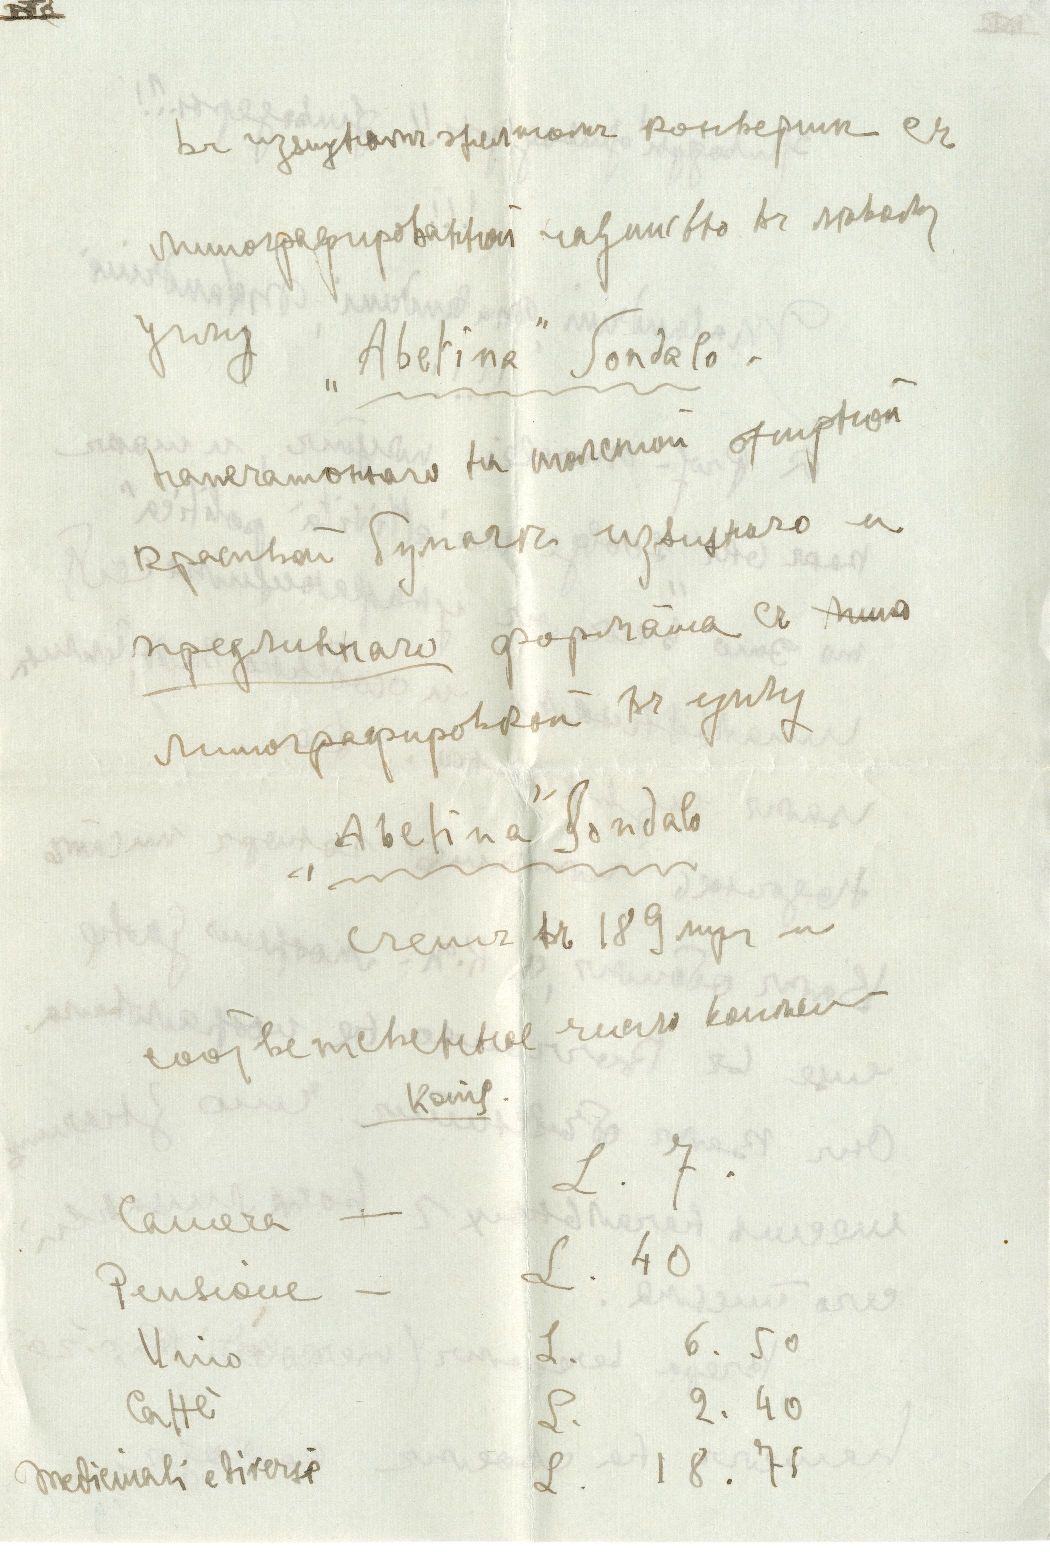 въ изящномъ желтомъ конвертик съ
литографированной надписью въ лѣвомъ
углу „Abetina” Sondalo.
напечатаннаго на толстой отрывной
красивой бумагѣ изящнаго и
предлиннаго формата съ
литографировкой въ углу
„Abetina” Sondalo
счетъ въ 189 лиръ и
соотвѣтственное число
копій.
Camera — L. 7.
Pensione — L. 40
Vino L. 6.50
Caffè L. 2.40
Medicinali e diversi L. 18.75